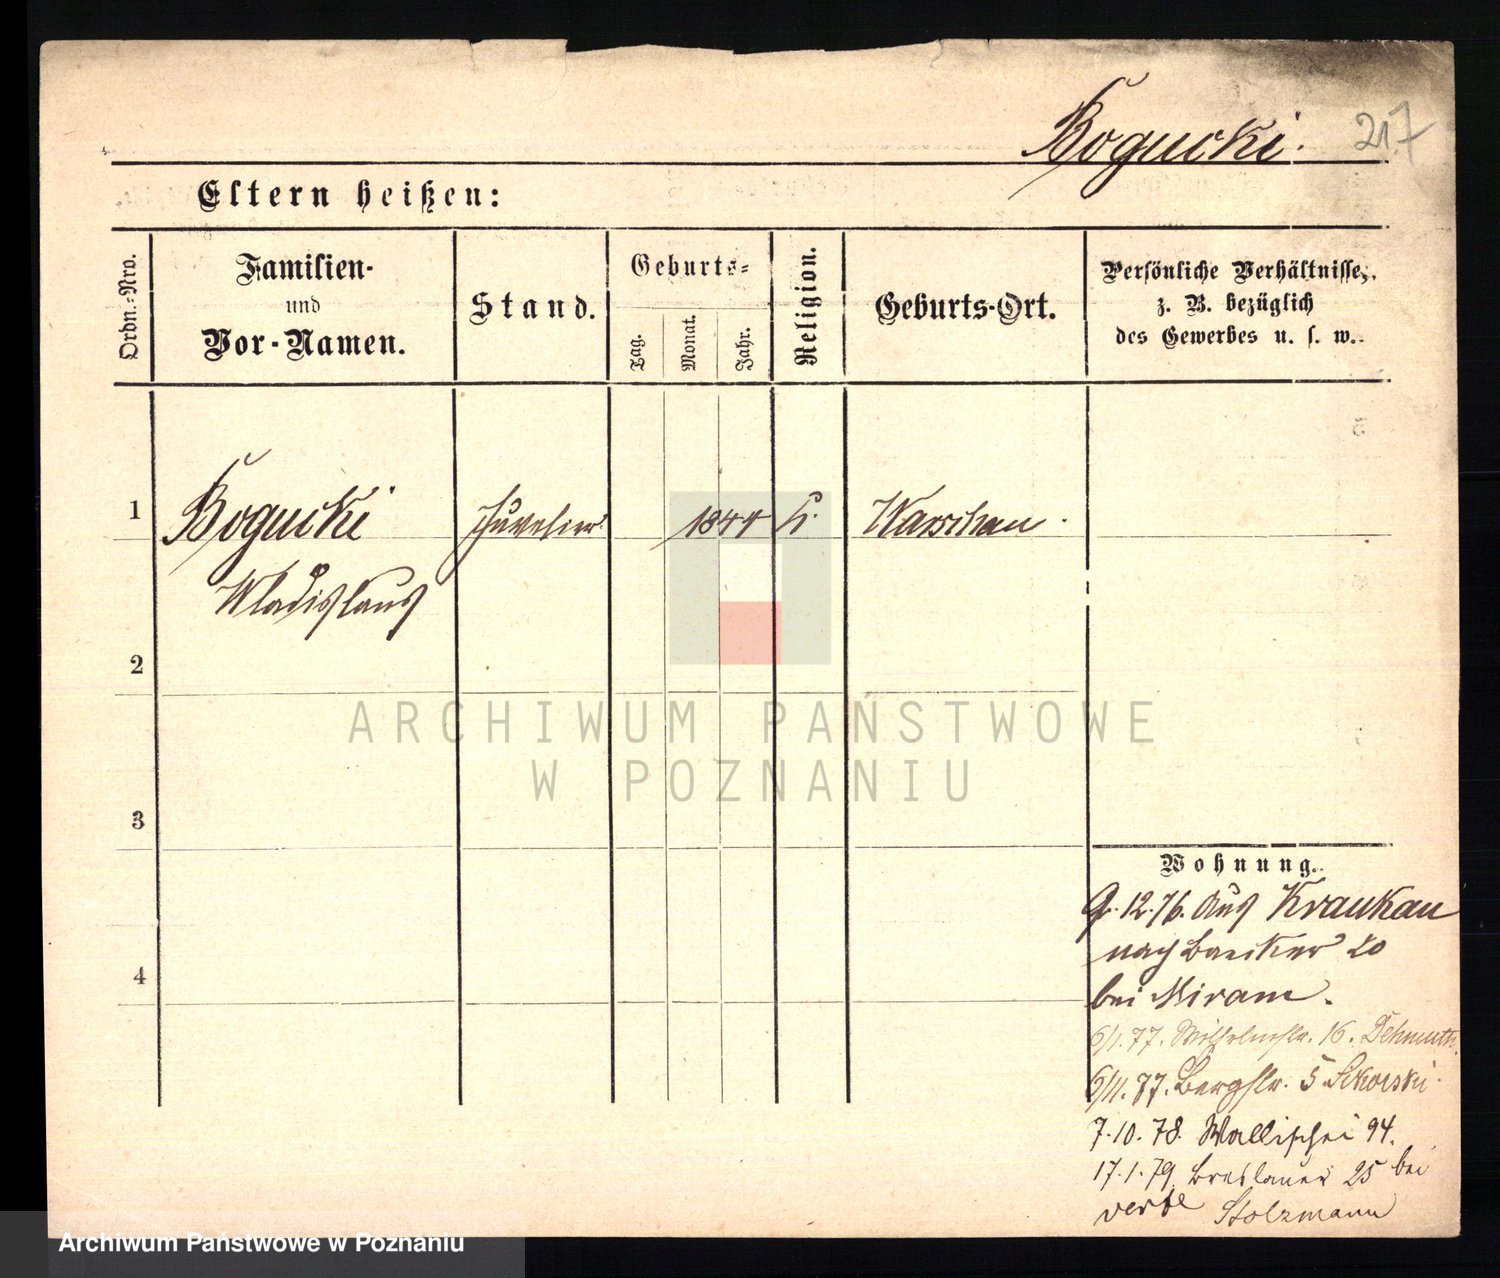 Bogucki. 217
Eltern heißen:
Ordn.-Nro.
Familien-
und
Vor-Namen.
Stand.
Geburts-
Tag.
Monat.
Jahr.
Religion.
Geburts-Ort.
Persönliche Verhältnisse,
z. B. bezüglich
des Gewerbes u. s. w.
1 Bogucki Juvelier 1844 k. Warschau.
Wladislaus
2
ARCHIWUM PAŃSTWOWE
W POZNANIU
3
Wohnung.
9.12.76. Aus Kraukau
nach Baecker 20
bei Miram.
4
6/1.77. Wilhelmstr. 16. Dehmuth.
6/11.77. Bergstr. 5 Sikorski.
7.10.78. Wallischei 94.
17.1.79. Breslauer 25 bei
Stolzmann
Archiwum Państwowe w Poznaniu